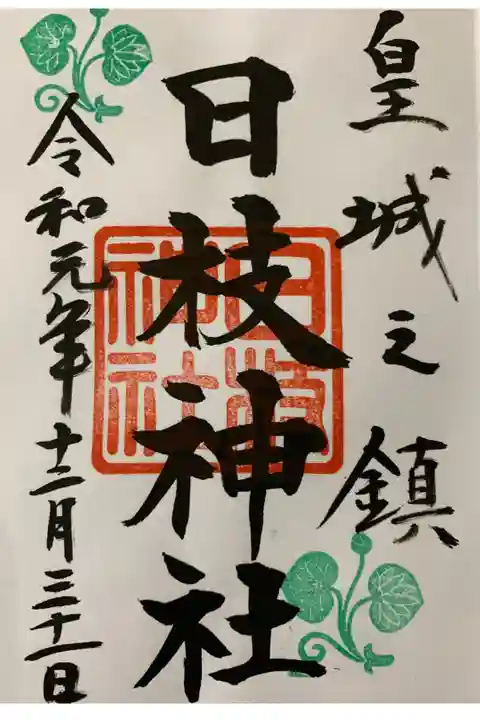 皇城之鎮
日枝神社
日枝
神社
令和元年十二月三十一日